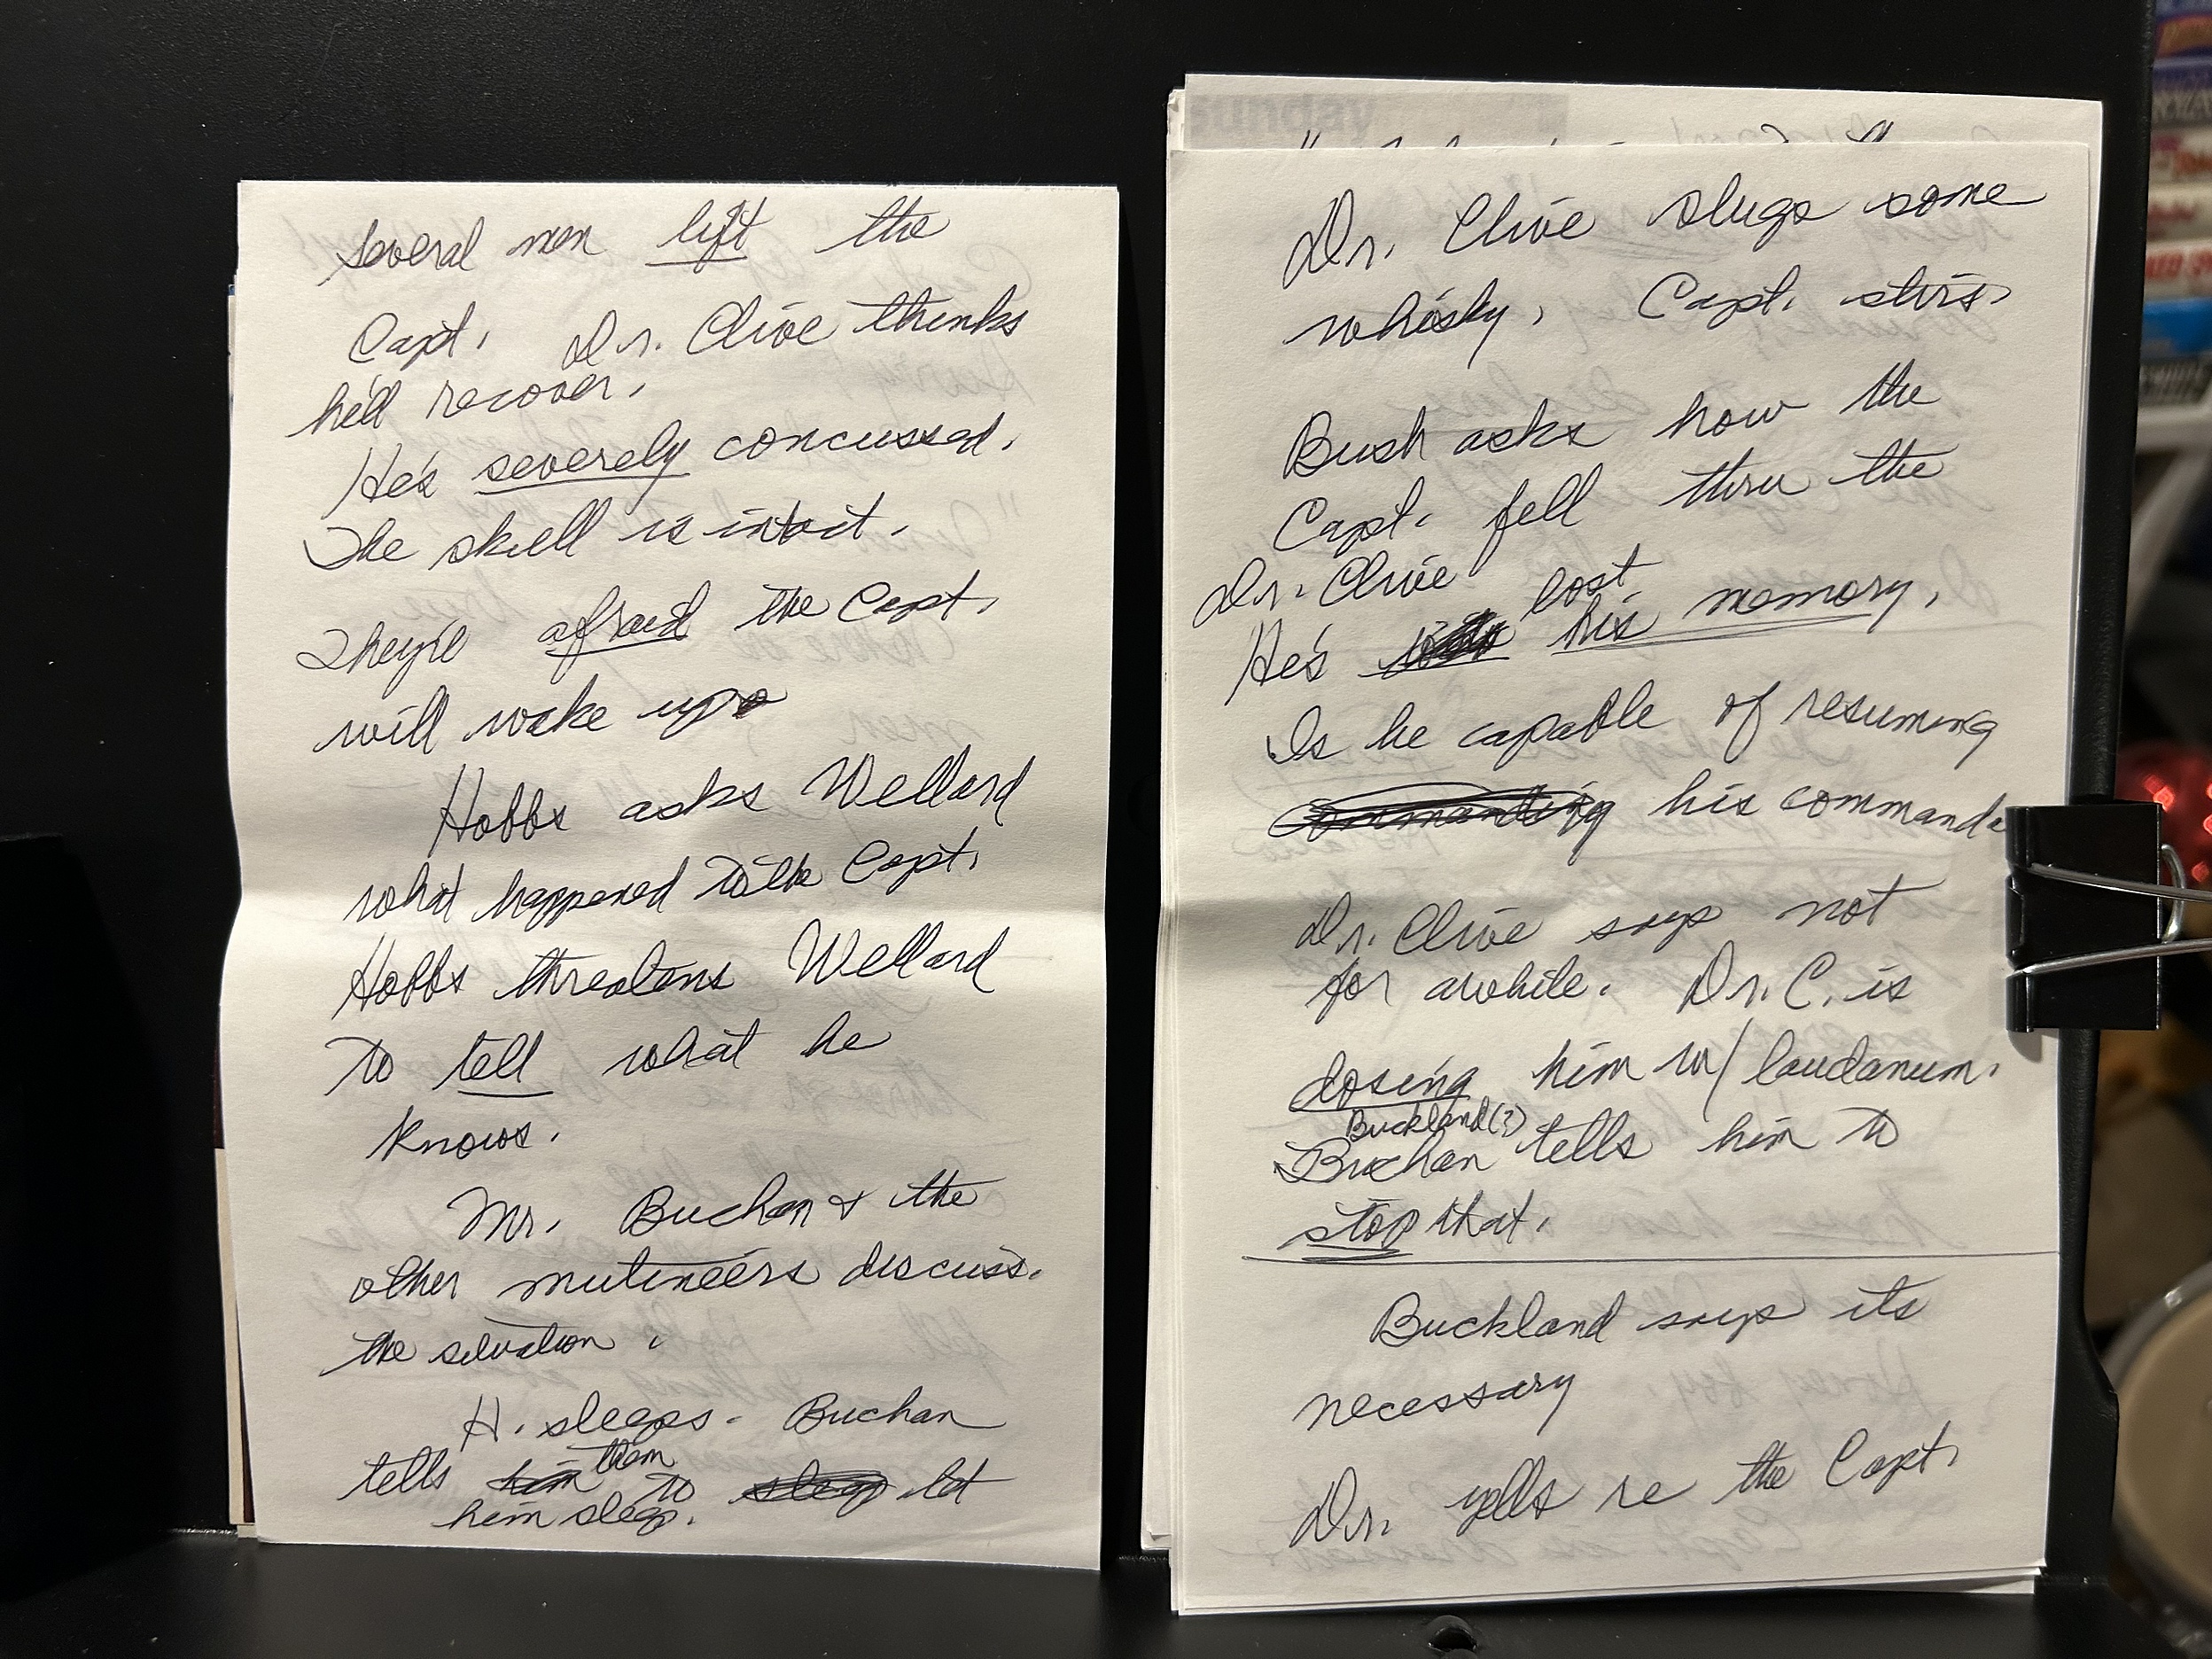 several men lift the
Capt. Dr. Clive thinks
he'll recover.
He's severely concussed.
The skull is intact.
They're afraid the Capt.
will wake up.
Hobbs asks Wellard
what happened to the Capt.
Hobbs threatens Wellard
to tell what he
knows.
Mr. Buchan & the
other mutineers discuss.
the situation.
H. sleeps. Buchan
tells him them to sleep let
him sleep.
sunday
Dr. Clive slugs some
whisky. Capt. stirs.
Bush asks how the
Capt. fell thru the
Dr. Clive lost
He's his memory.
Is he capable of resuming
commanding his command.
Dr. Clive says not
for awhile. Dr. C. is
dosing him w/ laudanum.
Buckland(?)
Buchan tells him to
stop that.
Buckland says its
necessary
Dr. yells re the Capt.